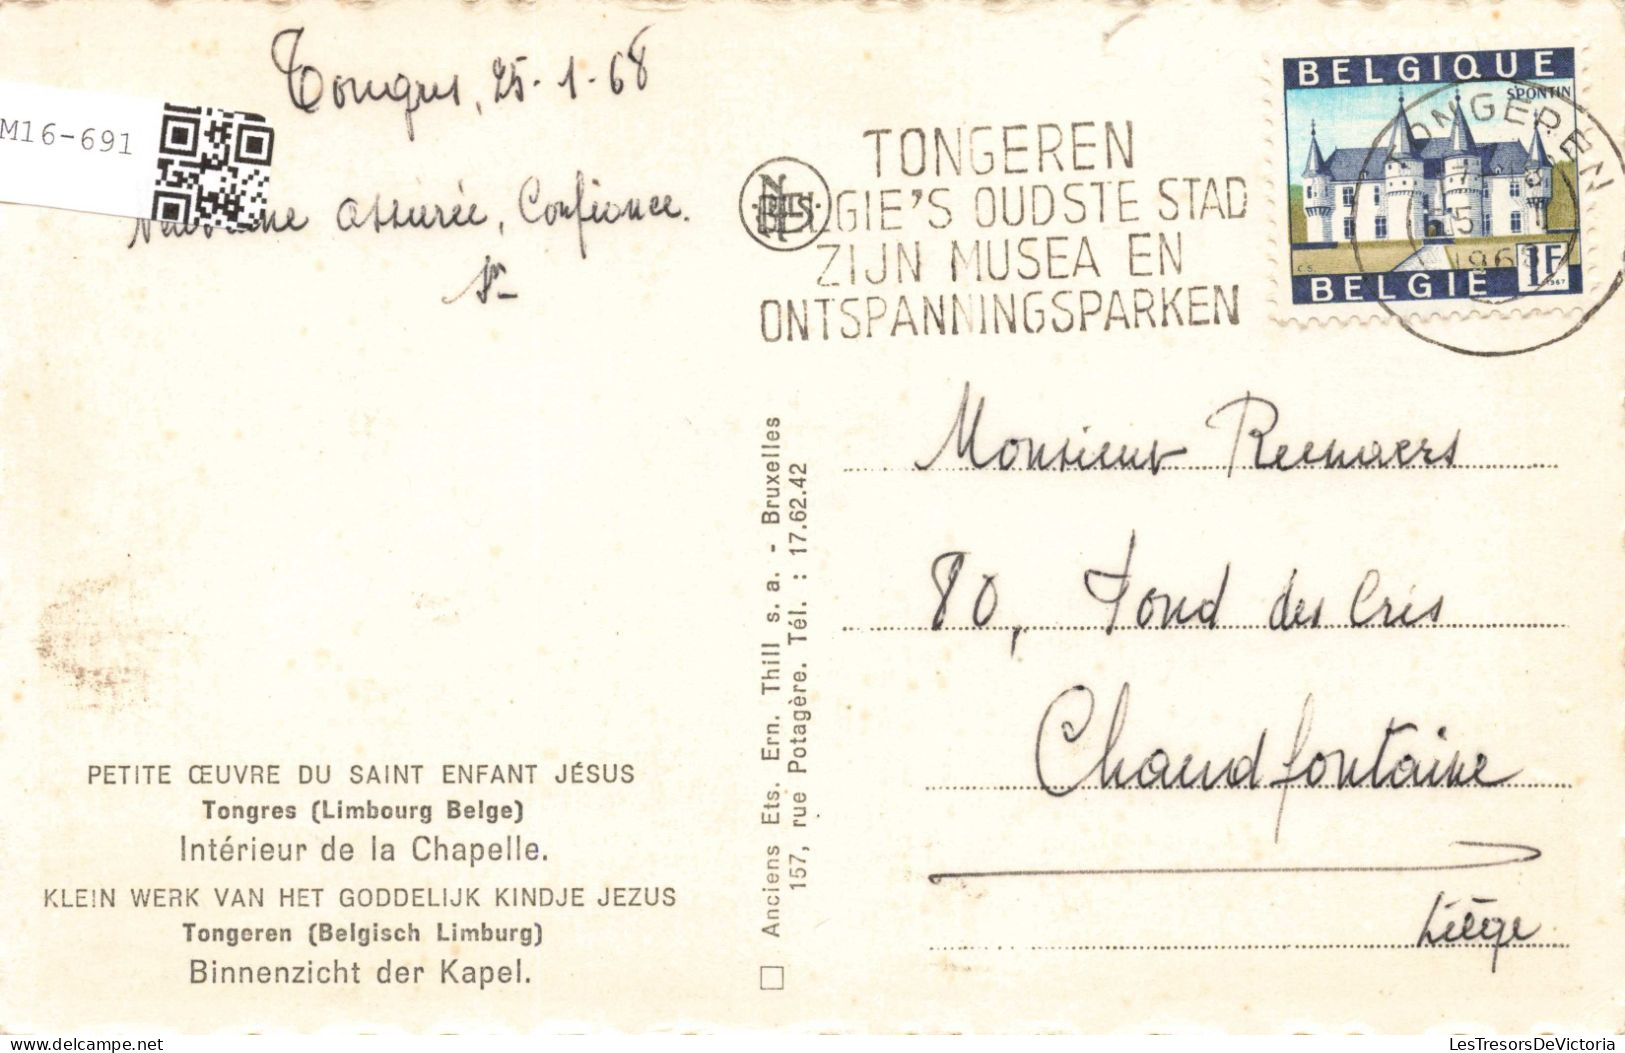 Tongres, 25-1-68
M16-691
Neuvaine assurée, Confiance.
TONGEREN
BELGIE'S OUDSTE STAD
ZIJN MUSEA EN
ONTSPANNINGSPARKEN
NELS
BELGIQUE
SPONTIN
BELGIË
1F
1967
C.S.
TONGEREN
1968
Monsieur Reenaers
80, Fond des Cris
Chaudfontaine
Liège
Anciens Ets. Ern. Thill s. a. - Bruxelles
157, rue Potagère. Tél. : 17.62.42
PETITE ŒUVRE DU SAINT ENFANT JÉSUS
Tongres (Limbourg Belge)
Intérieur de la Chapelle.
KLEIN WERK VAN HET GODDELIJK KINDJE JEZUS
Tongeren (Belgisch Limburg)
Binnenzicht der Kapel.
delcampe.net
LesTresorsDeVictoria